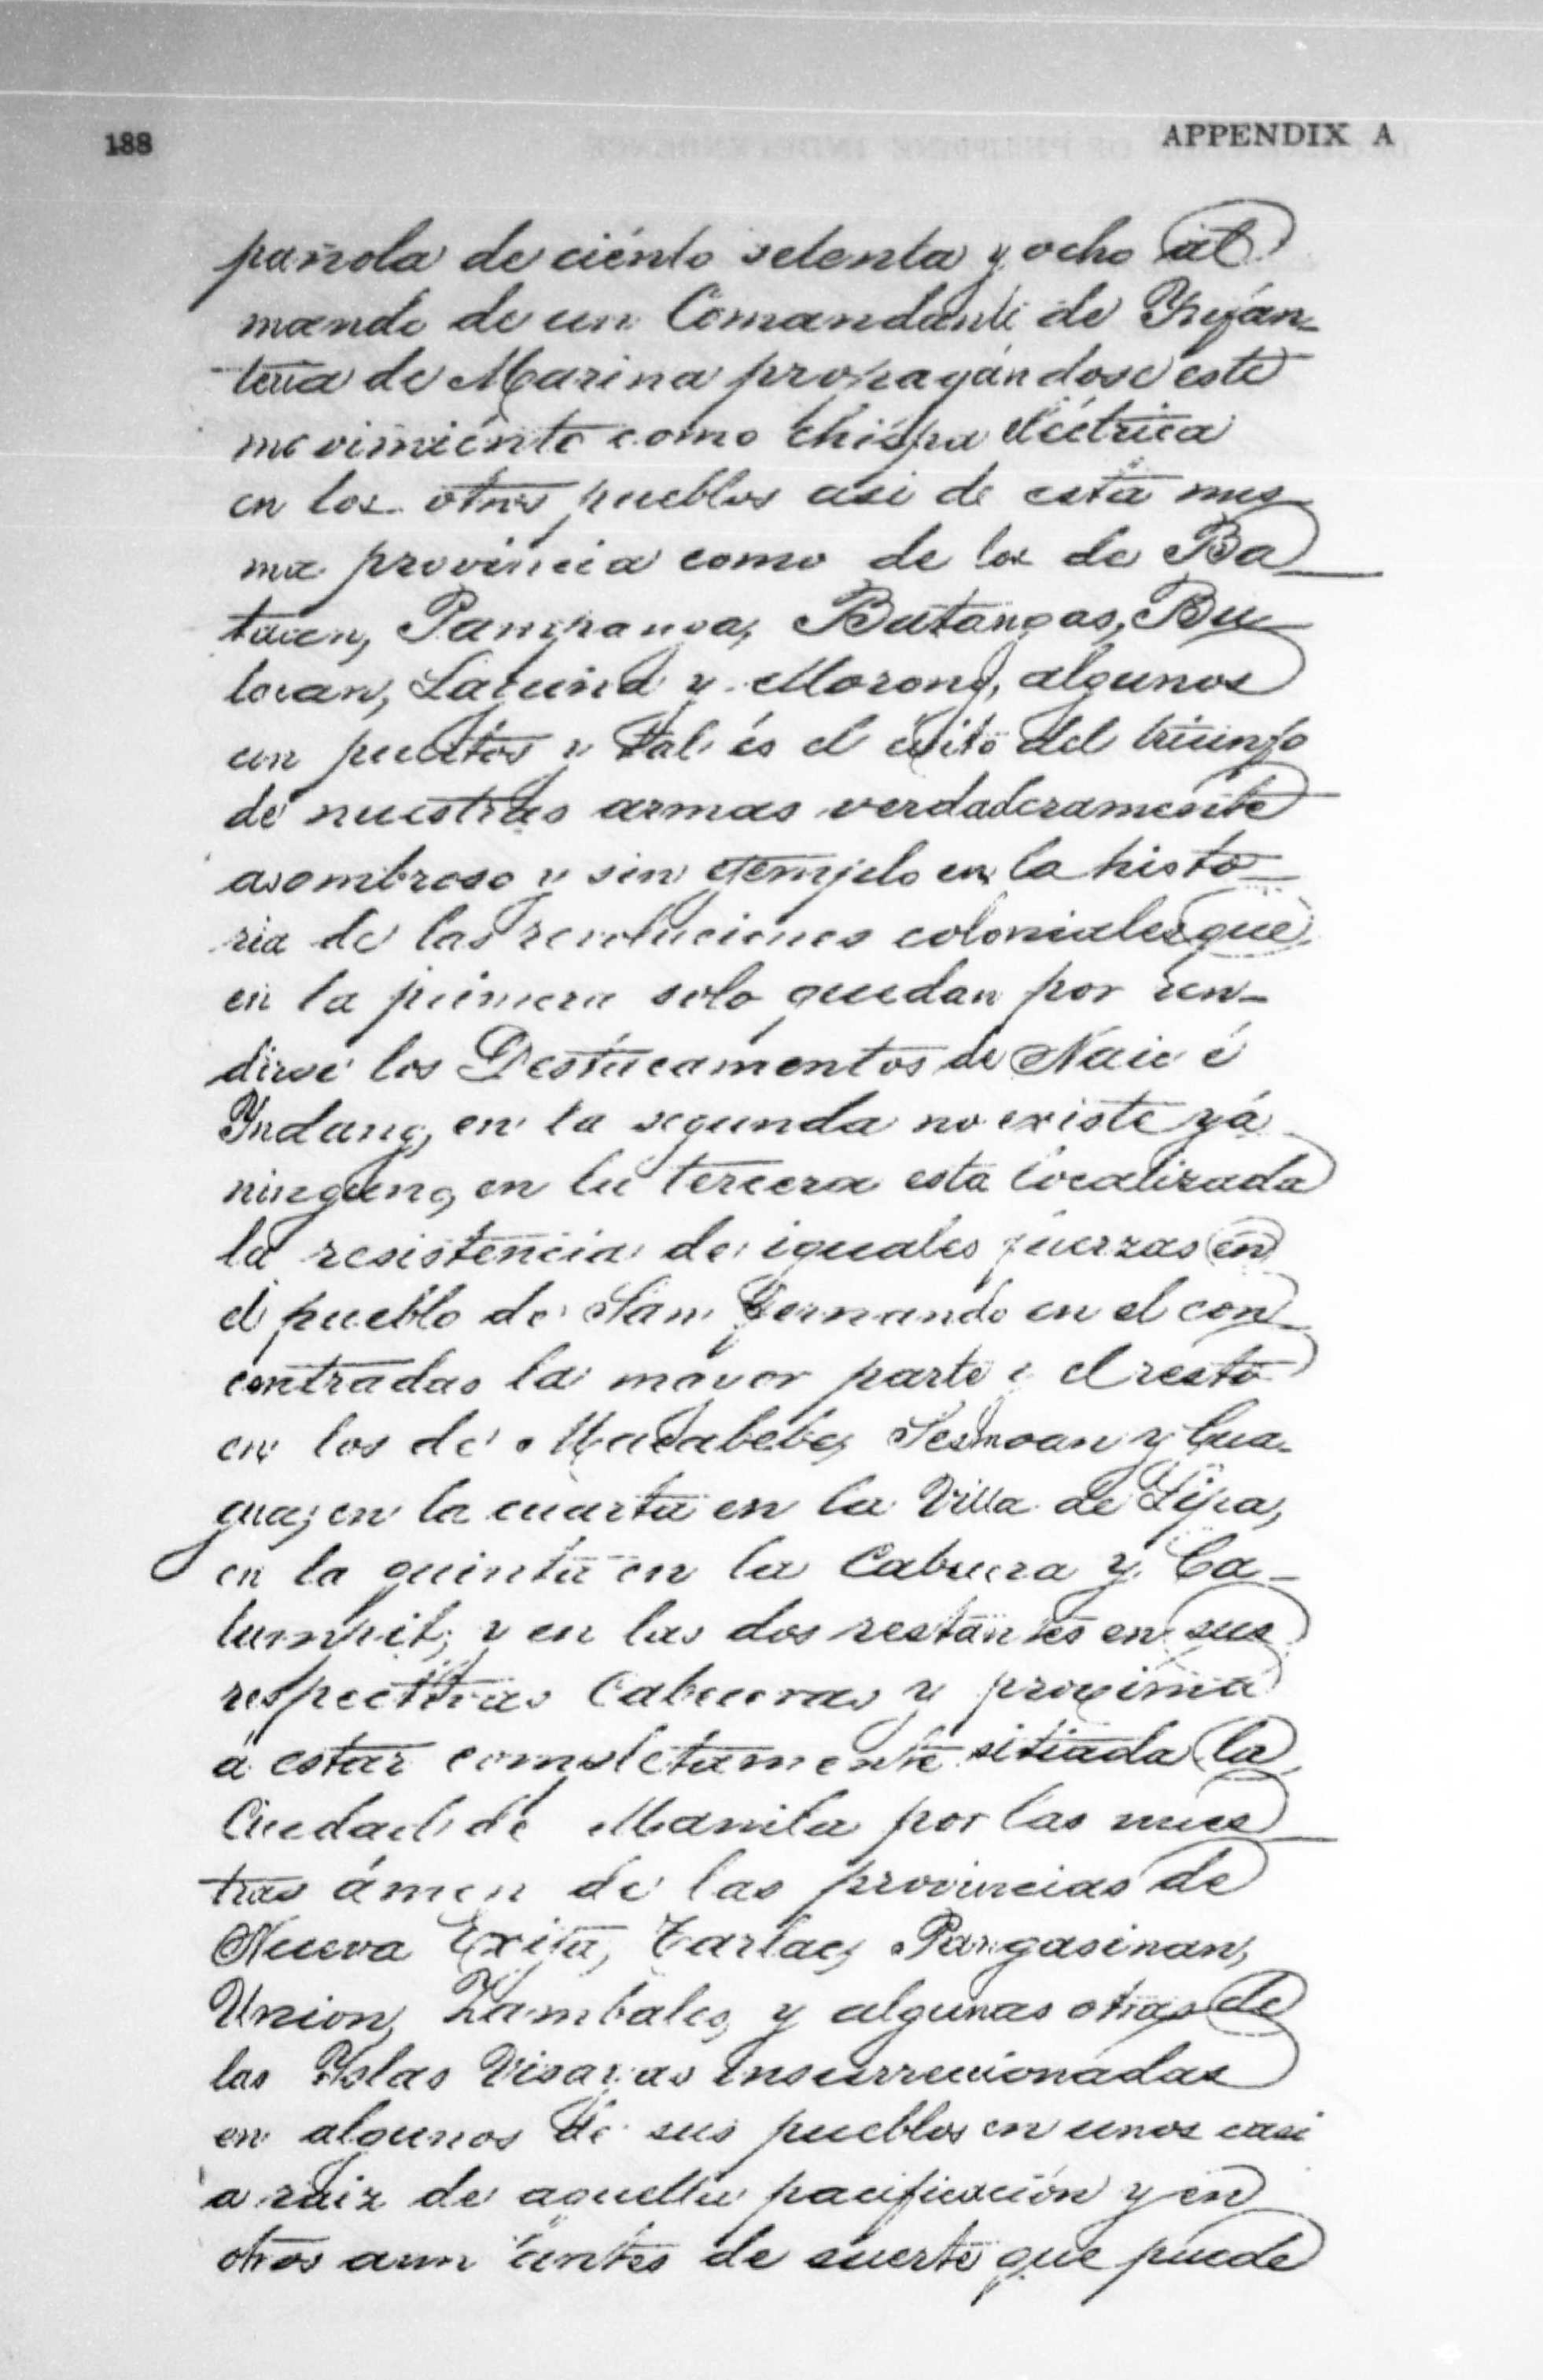 188
APPENDIX A
pañola de ciento setenta y ocho al
mando de un Comandante de Ynfan-
teria de Marina propagándose este
movimiento como chispa eléctrica
en los otros pueblos asi de esta mis
ma provincia como de los de Ba
taan, Pampanga, Batangas, Bu
lacan, Laguna y Morong, algunos
con puertos y tal és el éxito del triunfo
de nuestras armas verdaderamente
asombroso y sin ejemplo en la histo
ria de las revoluciones coloniales que
en la primera solo quedan por ren-
dirse los Destacamentos de Naic é
Yndang, en la segunda no existe yá
ninguno, en la tercera esta localizada
la resistencia de iguales fuerzas en
el pueblo de San Fernando en el con
centradas la mayor parte y el resto
en los de Macabebe, Sesmoan y Gua-
gua; en la cuarta en la Villa de Lipa,
en la quinta en la Cabecera y Ca-
lumpit; y en las dos restantes en sus
respectivas Cabeceras y proxima
á estar completamente sitiada la
Ciudad de Manila por las nues
tras ámen de las provincias de
Nueva Exija, Tarlac, Pangasinan,
Union, Zambales, y algunas otras de
las Yslas Visayas insurreccionadas
en algunos de sus pueblos en unos casi
a raiz de aquella pacificación y en
otros aun antes de suerte que puede